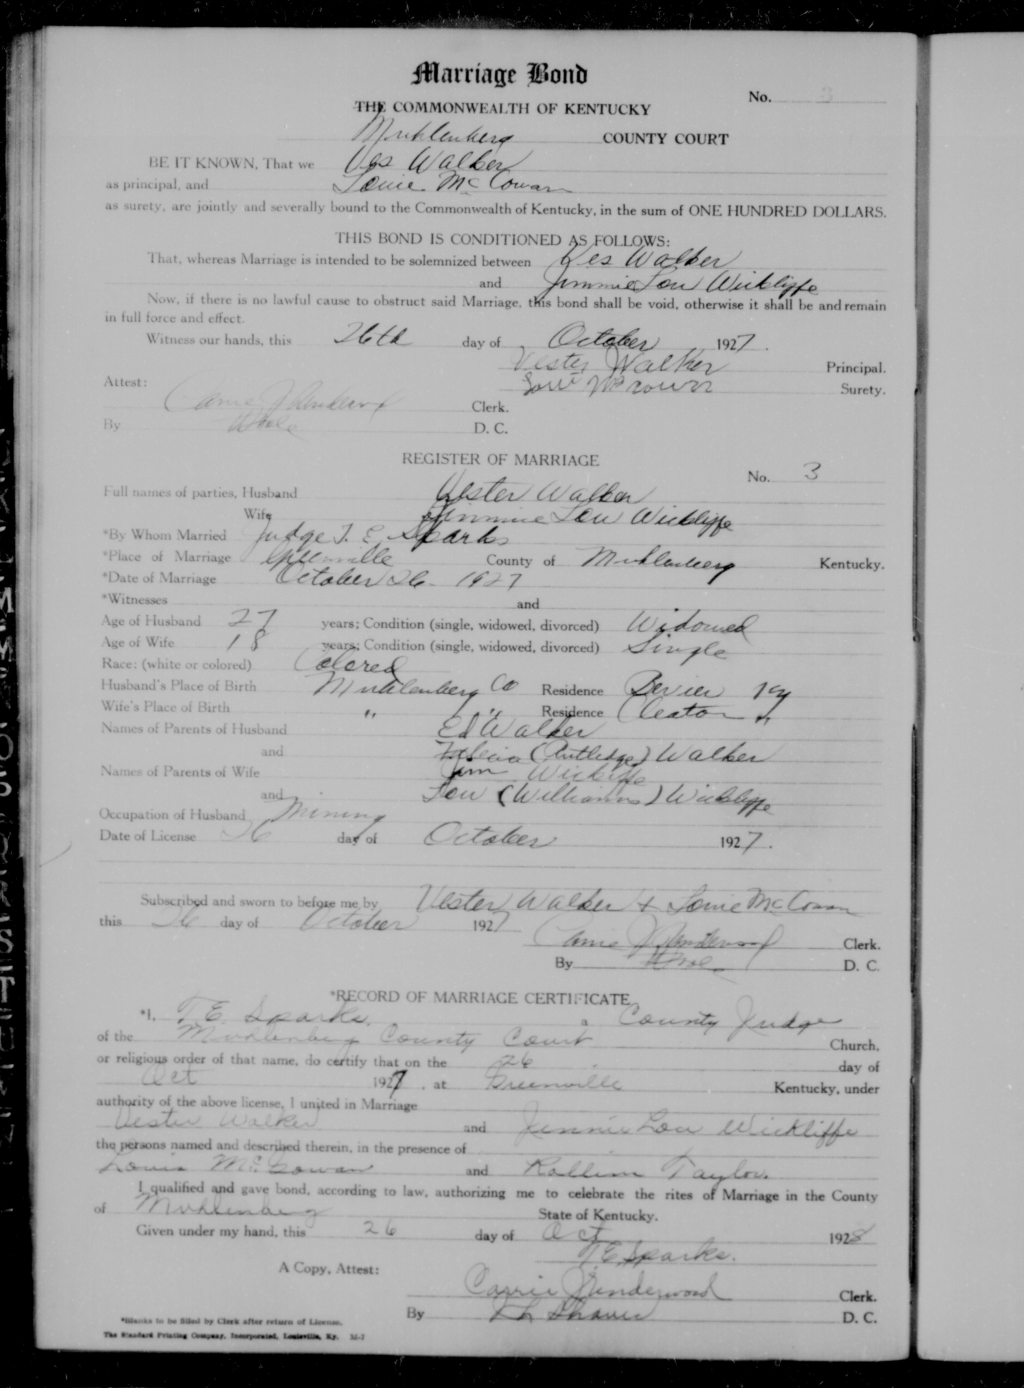 Marriage Bond
No. 3
THE COMMONWEALTH OF KENTUCKY
Muhlenberg COUNTY COURT
BE IT KNOWN, That we Ves Walker
as principal, and Louie McCowan
as surety, are jointly and severally bound to the Commonwealth of Kentucky, in the sum of ONE HUNDRED DOLLARS.
THIS BOND IS CONDITIONED AS FOLLOWS:
That, whereas Marriage is intended to be solemnized between Ves Walker
and Jimmie Lou Wickliffe
Now, if there is no lawful cause to obstruct said Marriage, this bond shall be void, otherwise it shall be and remain
in full force and effect.
Witness our hands, this 26th day of October 1927.
Vester Walker Principal.
Attest: Surety.
Clerk.
By D. C.
REGISTER OF MARRIAGE
No. 3
Full names of parties, Husband Vester Walker
Wife Jimmie Lou Wickliffe
*By Whom Married Judge T. E. Sparks
*Place of Marriage Greenville County of Muhlenberg Kentucky.
*Date of Marriage October 26 1927
*Witnesses and
Age of Husband 27 years; Condition (single, widowed, divorced) Widowed
Age of Wife 18 years; Condition (single, widowed, divorced) Single
Race: (white or colored) Colored
Husband's Place of Birth Muhlenberg Co Residence Bevier Ky
Wife's Place of Birth " " Residence Cleaton "
Names of Parents of Husband Ed Walker
and (Rutledge) Walker
Names of Parents of Wife Jim Wickliffe
and Lou (Williams) Wickliffe
Occupation of Husband Mining
Date of License 26 day of October 1927.
Subscribed and sworn to before me by Vester Walker & Louie McCowan
this 26 day of October 1927
Carrie J Underwood Clerk.
By D. C.
*RECORD OF MARRIAGE CERTIFICATE
*I, T. E. Sparks, a County Judge
of the Muhlenberg County Court Church,
or religious order of that name, do certify that on the 26 day of
Oct 1927, at Greenville Kentucky, under
authority of the above license, I united in Marriage
Vester Walker and Jimmie Lou Wickliffe
the persons named and described therein, in the presence of
Louis McGowan and Taylor.
I qualified and gave bond, according to law, authorizing me to celebrate the rites of Marriage in the County
of Muhlenberg State of Kentucky.
Given under my hand, this 26 day of Oct 1928
T. E. Sparks.
A Copy, Attest:
Carrie J Underwood Clerk.
By Shaver D. C.
*Blanks to be filled by Clerk after return of License.
The Standard Printing Company, Incorporated, Louisville, Ky.